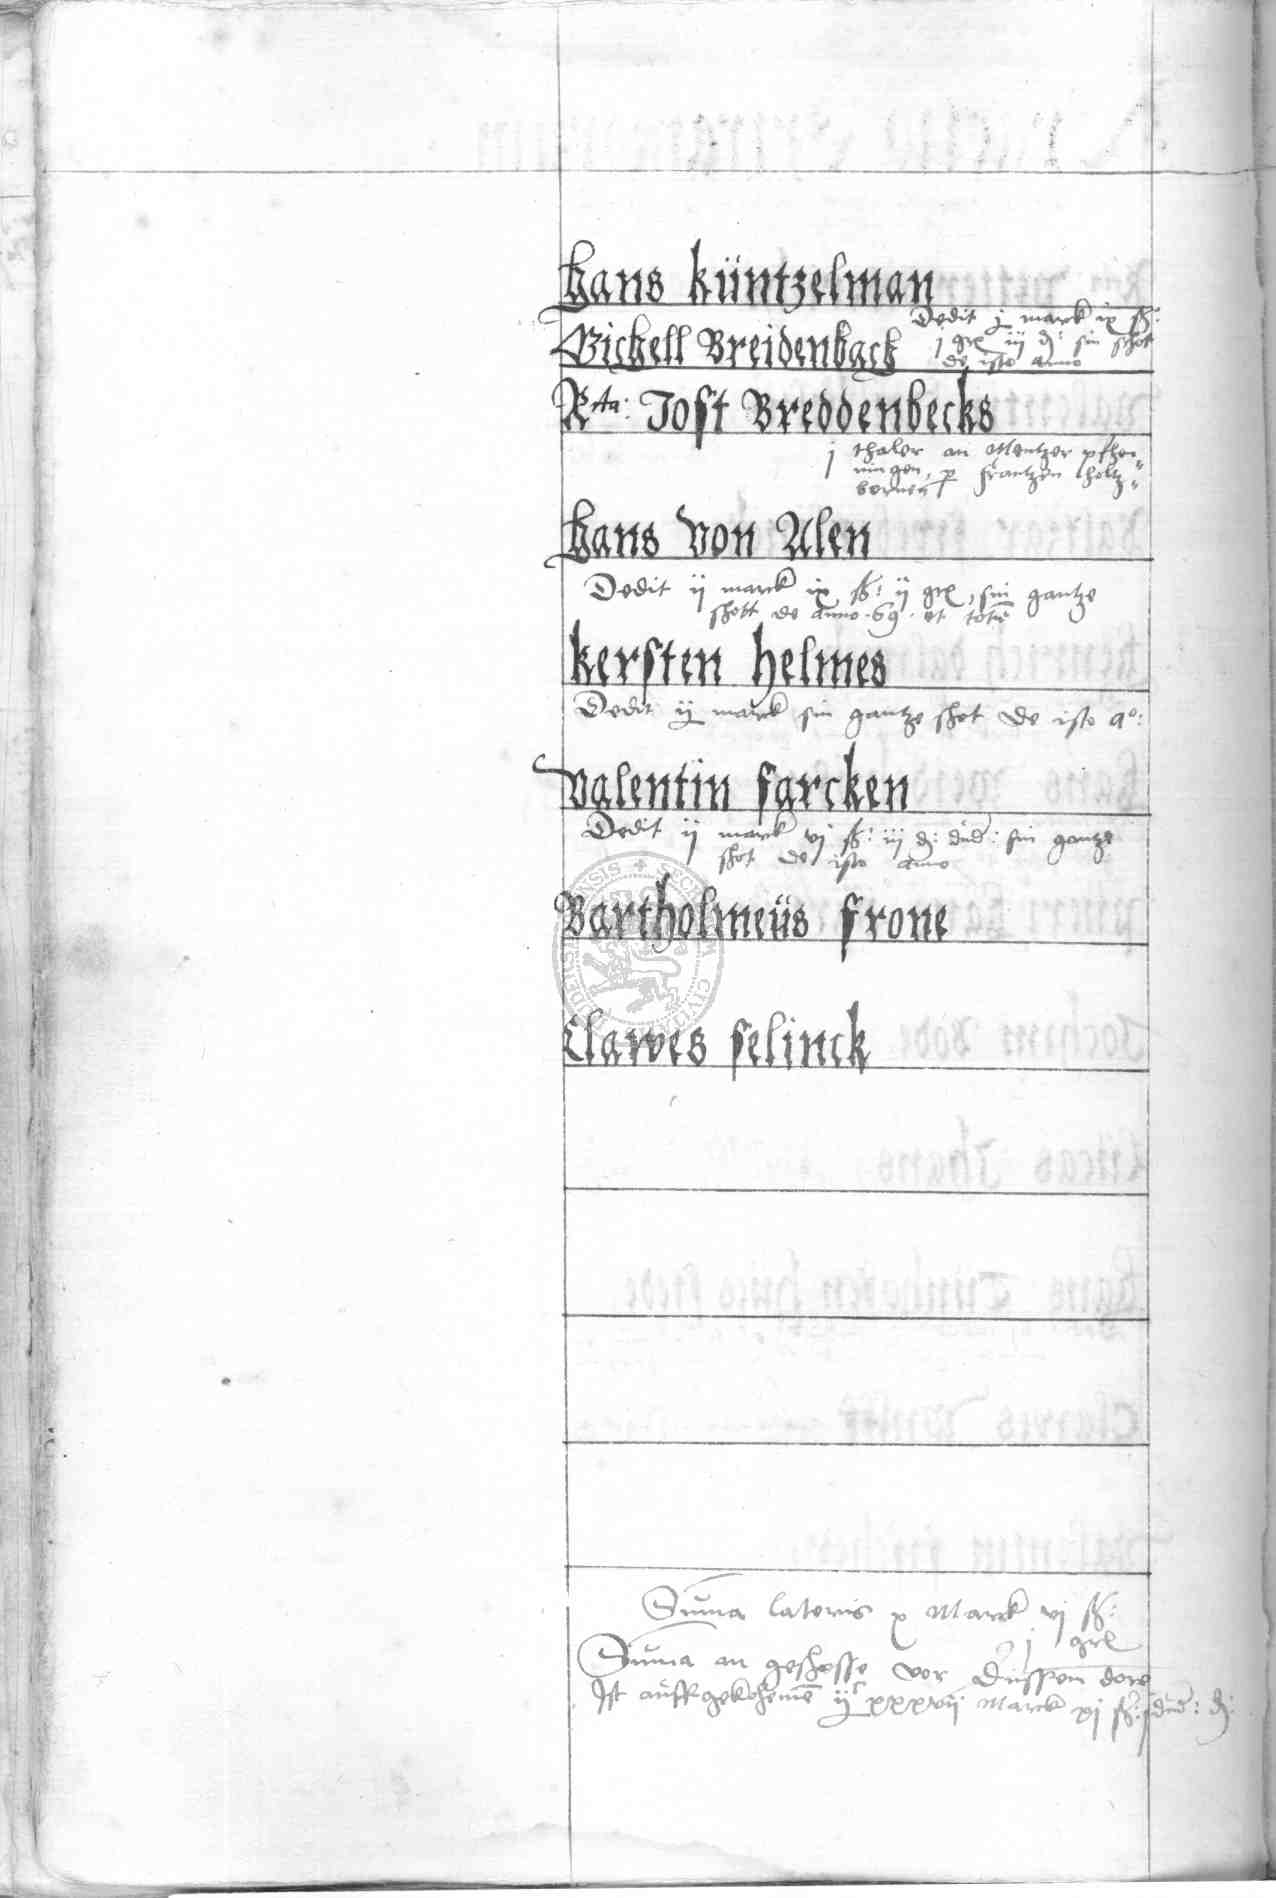 Hans Küntzelman
Dedit j marck ix ß:
Bickell Breidenback j grl iij d: sin schot
de isto anno
Rta: Jost Breddenbecks
j thaler an Mentzer pfhen-
ningen, p frantzen holtz-
bornen
Hans von Alen
Dedit ij marck ix ß: ij grl, sin gantze
schott de anno .69. et totum
Kersten Helmes
Dedit ij marck sin gantze schot de isto ao:
Valentin Farcken
Dedit ij marck vj ß: iij d: sin gantze
schot de isto anno
Bartholmeüs Frone
Clawes Selinck
Suma lateris x Marck vj ß:
j grl
Suma an geschosse vor dussem dore
Ist auffgekohemē ijc xxxvij Marck xj ß: d: